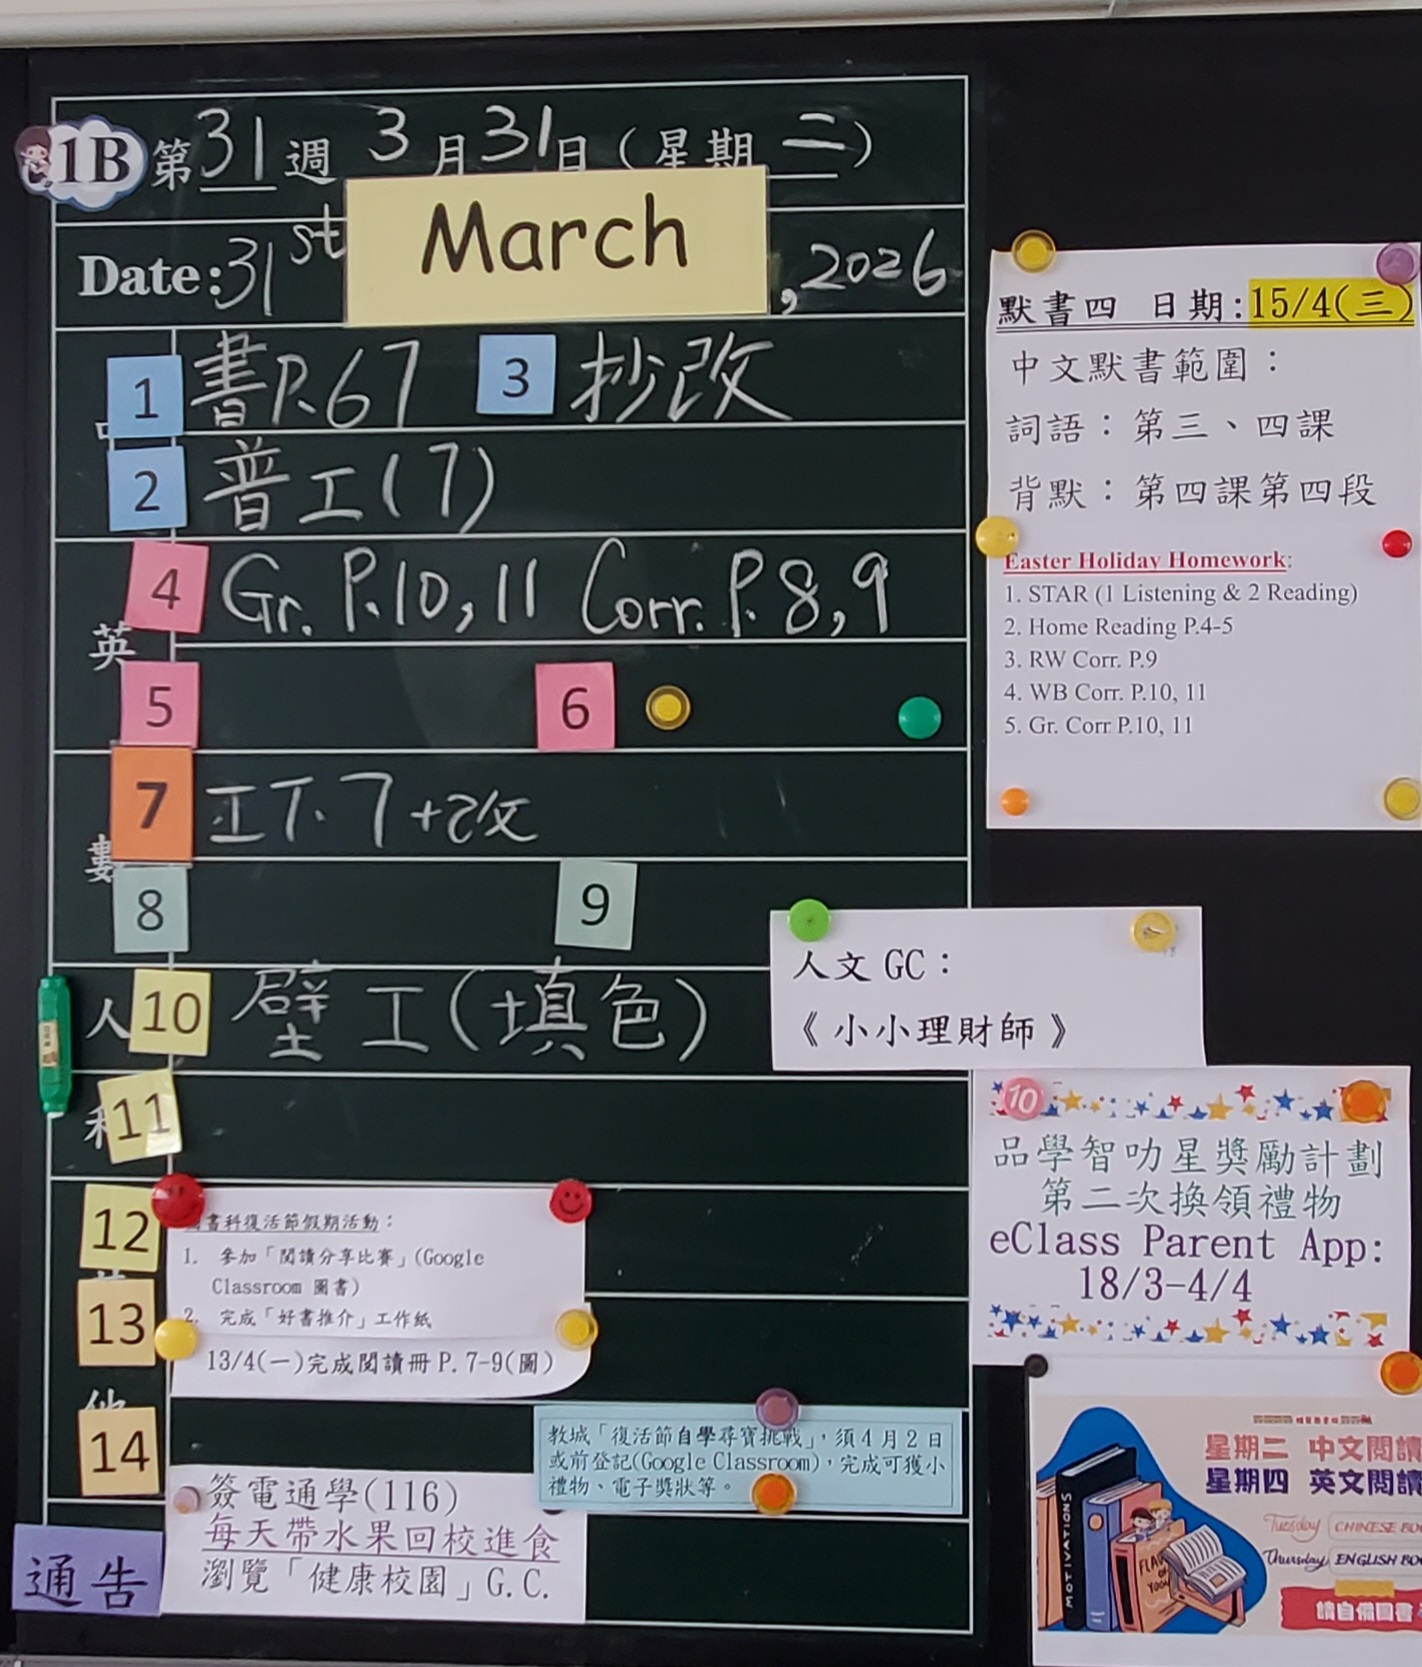 1B 第 31 週 3 月 31 日 (星期 二)
Date: 31st March, 2026
1 書P.67 3 抄改
2 普工(7)
英
4 Gr. P.10, 11 Corr. P.8, 9
5 6
數
7 工下.7+改
8 9
人
10 壁工(填色)
11
12
13
14
圖書科復活節假期活動：
1. 參加「閱讀分享比賽」(Google
Classroom 圖書)
2. 完成「好書推介」工作紙
13/4(一)完成閱讀冊 P.7-9(圖)
教城「復活節自學尋寶挑戰」，須4月2日
或前登記(Google Classroom)，完成可獲小
禮物、電子獎狀等。
通告
簽電通學(116)
每天帶水果回校進食
瀏覽「健康校園」G.C.
默書四 日期:15/4(三)
中文默書範圍：
詞語：第三、四課
背默：第四課第四段
Easter Holiday Homework:
1. STAR (1 Listening & 2 Reading)
2. Home Reading P.4-5
3. RW Corr. P.9
4. WB Corr. P.10, 11
5. Gr. Corr P.10, 11
人文 GC：
《小小理財師》
10
品學智叻星獎勵計劃
第二次換領禮物
eClass Parent App:
18/3-4/4
星期二 中文閱讀
星期四 英文閱讀
Tuesday CHINESE BO
Thursday ENGLISH BO
請自備圖書
MOTIVATIONS